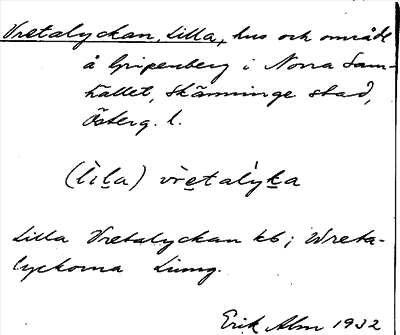 Vretalyckan, Lilla, hus och område
å Gripenberg i Norra Sam-
hället, Skänninge stad,
Österg. l.
(lìla) vrètalýka
Lilla Vretalyckan kb; Wreta-
lyckorna Ljung.
Erik Alm 1932